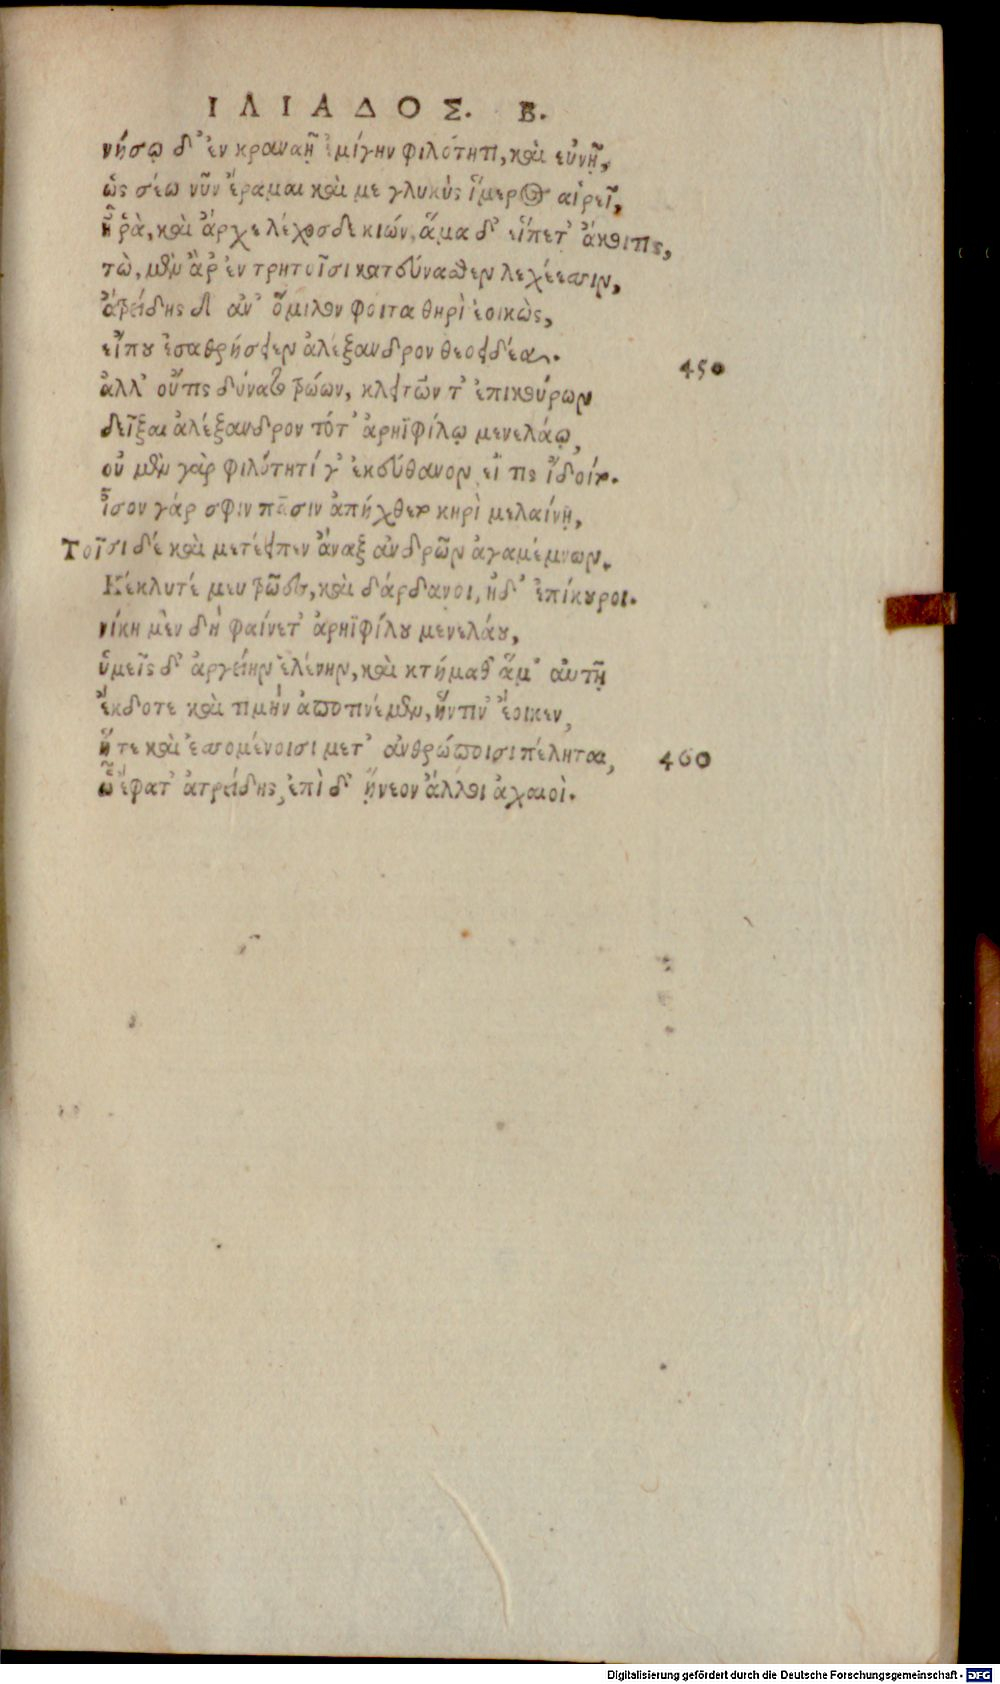 ΙΛΙΑΔΟΣ. Β.
νήσῳ δ' ἐν κραναῇ ἐμίγην φιλότητι, καὶ εὐνῇ,
ὥς σέω νῦν ἔραμαι καὶ με γλυκὺς ἵμερος αἱρεῖ,
ἦ ῥὰ, καὶ ἄρχε λέχοσδε κιών, ἅμα δ' εἵπετ' ἄκοιτις,
τὼ, μὲν ἂρ ἐν τρητοῖσι κατεύνασθεν λεχέεσσιν,
ἀτρείδης δὲ ἀν' ὅμιλον φοιτα θηρὶ ἐοικὼς,
εἴπου ἐσαθρήσειεν ἀλέξανδρον θεοειδέα.
450
ἀλλ' οὔτις δύνατο τρώων, κλειτῶν τ' ἐπικούρων
δεῖξαι ἀλέξανδρον τότ' ἀρηϊφίλῳ μενελάῳ,
οὐ μὲν γὰρ φιλότητί γ' ἐκεύθανον εἴ τις ἴδοιτο.
ἶσον γάρ σφιν πᾶσιν ἀπήχθετο κηρὶ μελαίνῃ,
Τοῖσι δέ καὶ μετέειπεν ἄναξ ἀνδρῶν ἀγαμέμνων.
Κέκλυτέ μευ τρῶες, καὶ δάρδανοι, ἠδ' ἐπίκουροι.
νίκη μὲν δὴ φαίνετ' ἀρηϊφίλου μενελάου,
ὑμεῖς δ' ἀργείην ἑλένην, καὶ κτήμαθ' ἅμ' αὐτῇ
ἔκδοτε καὶ τιμὴν ἀποτινέμεν, ἥντιν' ἔοικεν,
ἥ τε καὶ ἐσσομένοισι μετ' ἀνθρώποισι πέληται,
460
ὣς ἔφατ' ἀτρείδης, ἐπὶ δ' ᾔνεον ἄλλοι ἀχαιοὶ.
Digitalisierung gefördert durch die Deutsche Forschungsgemeinschaft - DFG